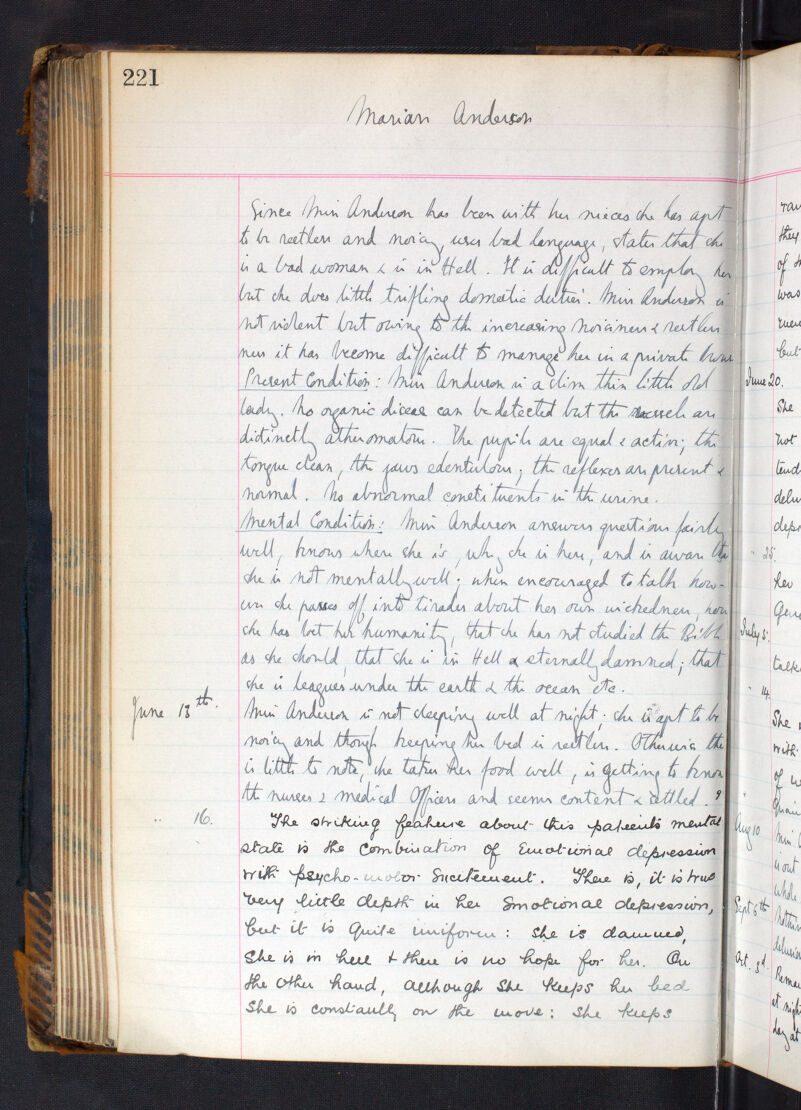 221
Marian Anderson
Since Miss Anderson has been with her nieces she has apt
to be restless and noisy, uses bad language, states that she
is a bad woman & is in Hell. It is difficult to employ her
but she does little trifling domestic duties. Miss Anderson is
not violent but owing to the increasing noisiness & restless
ness it has become difficult to manage her in a private house
Present Condition: Miss Anderson is a slim thin little old
lady. No organic disease can be detected but the vessels are
distinctly atheromatous. The pupils are equal & active; the
tongue clean, the jaws edentulous; the reflexes are present &
normal. No abnormal constituents in the urine.
Mental Condition: Miss Anderson answers questions fairly
well, knows where she is, why she is here, and is aware that
she is not mentally well; when encouraged to talk how-
ever she passes off into tirades about her own wickedness, how
she has lost her humanity, that she has not studied the Bible
as she should, that she is in Hell & eternally damned; that
she is leagues under the earth & the ocean etc.
June 13th. Miss Anderson is not sleeping well at night; she is apt to be
noisy and though keeping her bed is restless. Otherwise there
is little to note, she takes her food well, is getting to know
the nurses & medical Officers and seems content & settled.
" 16. The striking feature about this patient's mental
state is the combination of Emotional depression
with psycho-motor Excitement. There is, it is true
very little depth in her Emotional depression,
but it is quite uniform: she is damned,
She is in hell & there is no hope for her. On
the other hand, although She keeps her bed
She is constantly on the move: She keeps
they
was
but
June 20.
She
not
" 25.
her
July 5.
" 14.
She
with
of
Aug 10
Miss
is out
whole
Sept 5th
Oct. 3d
at night
day at